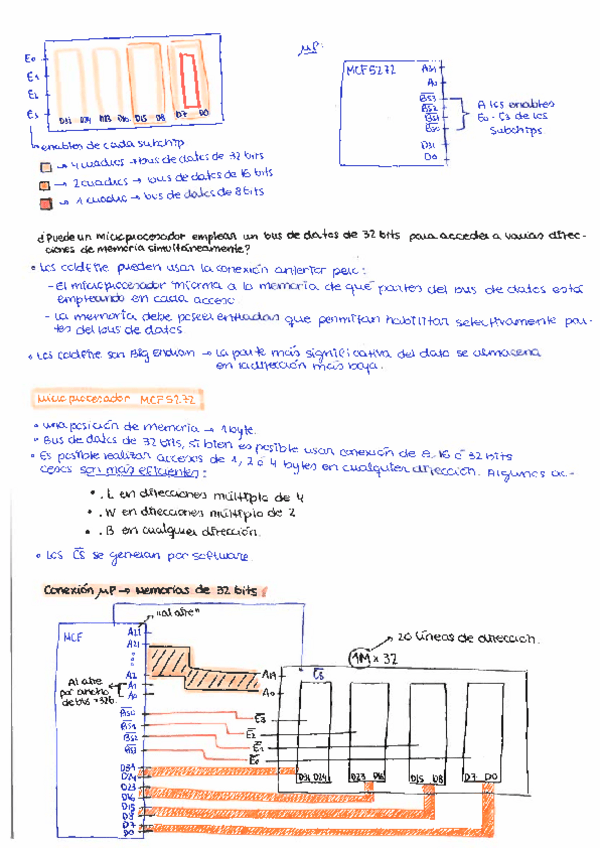 E0
E1
E2
E3
D31 D24 D23 D16 D15 D8 D7 D0
enables de cada subchip
→ 4 cuadros → bus de datos de 32 bits
→ 2 cuadros → bus de datos de 16 bits
→ 1 cuadro → bus de datos de 8 bits
μP:
MCF5272
A31
A0
BS3
BS2
BS1
BS0
D31
D0
A los enables
E0-E3 de los
subchips.
¿Puede un microprocesador emplear un bus de datos de 32 bits para acceder a varias direc-
ciones de memoria simultáneamente?
• Los coldfire pueden usar la conexión anterior pero:
- El microprocesador informa a la memoria de qué partes del bus de datos está
empleando en cada acceso
- La memoria debe poseer entradas que permitan habilitar selectivamente par-
tes del bus de datos
• Los coldfire son Big Endian → La parte más significativa del dato se almacena
en la dirección más baja.
Microprocesador MCF5272
• Una posición de memoria → 1 byte.
• Bus de datos de 32 bits, si bien es posible usar conexión de 8, 16 ó 32 bits
• Es posible realizar accesos de 1, 2 ó 4 bytes en cualquier dirección. Algunos ac-
cesos son más eficientes:
• .L en direcciones múltiplo de 4
• .W en direcciones múltiplo de 2
• .B en cualquier dirección.
• Los CS se generan por software.
Conexión μP → Memorias de 32 bits
"al aire"
MCF
A21
A2
A1
A0
Al aire
por ancho
de bus = 32b.
D31
D24
D23
D16
D15
D8
D7
D0
20 líneas de dirección.
1M x 32
A19
A0
CS
E3
E2
E1
E0
D31 D24
D23 D16
D15 D8
D7 D0